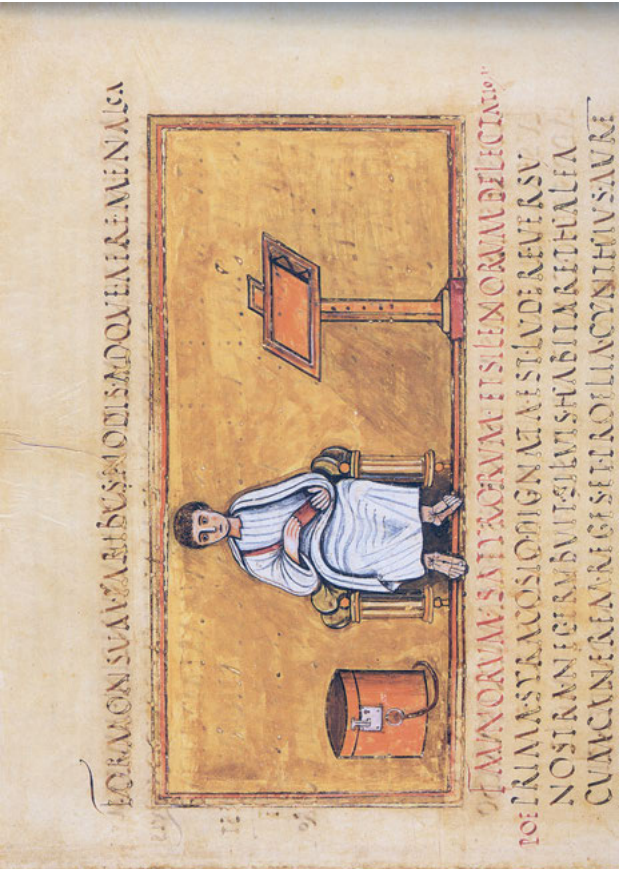 FORMONSVM PARIBVS NODIS ADQVE AERE MENALCA
FAVNORVM·SATYRORVM·ET SILENORVM DELECTATIO
POE PRIMA SYRACOSIO DIGNATA EST LVDERE VERSV
NOSTRA NEC ERVBVIT SILVIS HABITARE THALEA
CVM CANEREM REGES ET PROELIA CYNTHIVS AVRE